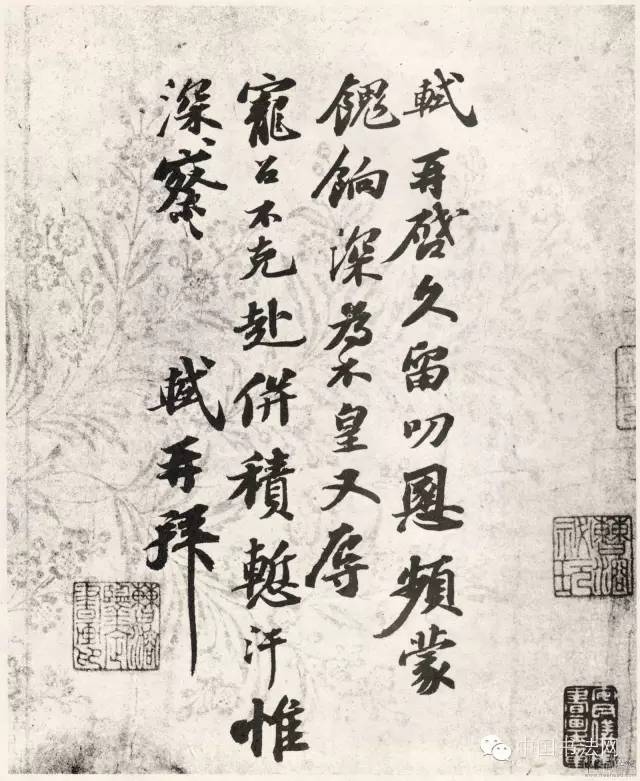 軾再啓久留叨恩頻蒙
餽餉深為不皇又辱
寵召不克赴併積慙汗惟
深察 軾再拜
曹溶秘玩
中国书法网